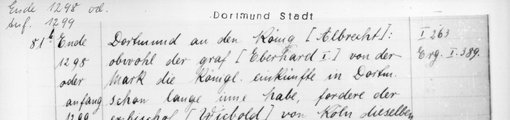 Ende 1298 od.
Anf. 1299
Dortmund Stadt
81b Ende 1298 oder anfang 1299
Dortmund an den König [Albrecht]:
obwohl der graf [Eberhard I.] von der
Mark die Königl. einkünfte in Dortm.
schon lange inne habe, fordere der
erzbischof [Wicbold] von Köln dieselben
I 263
Erg. I. 389.